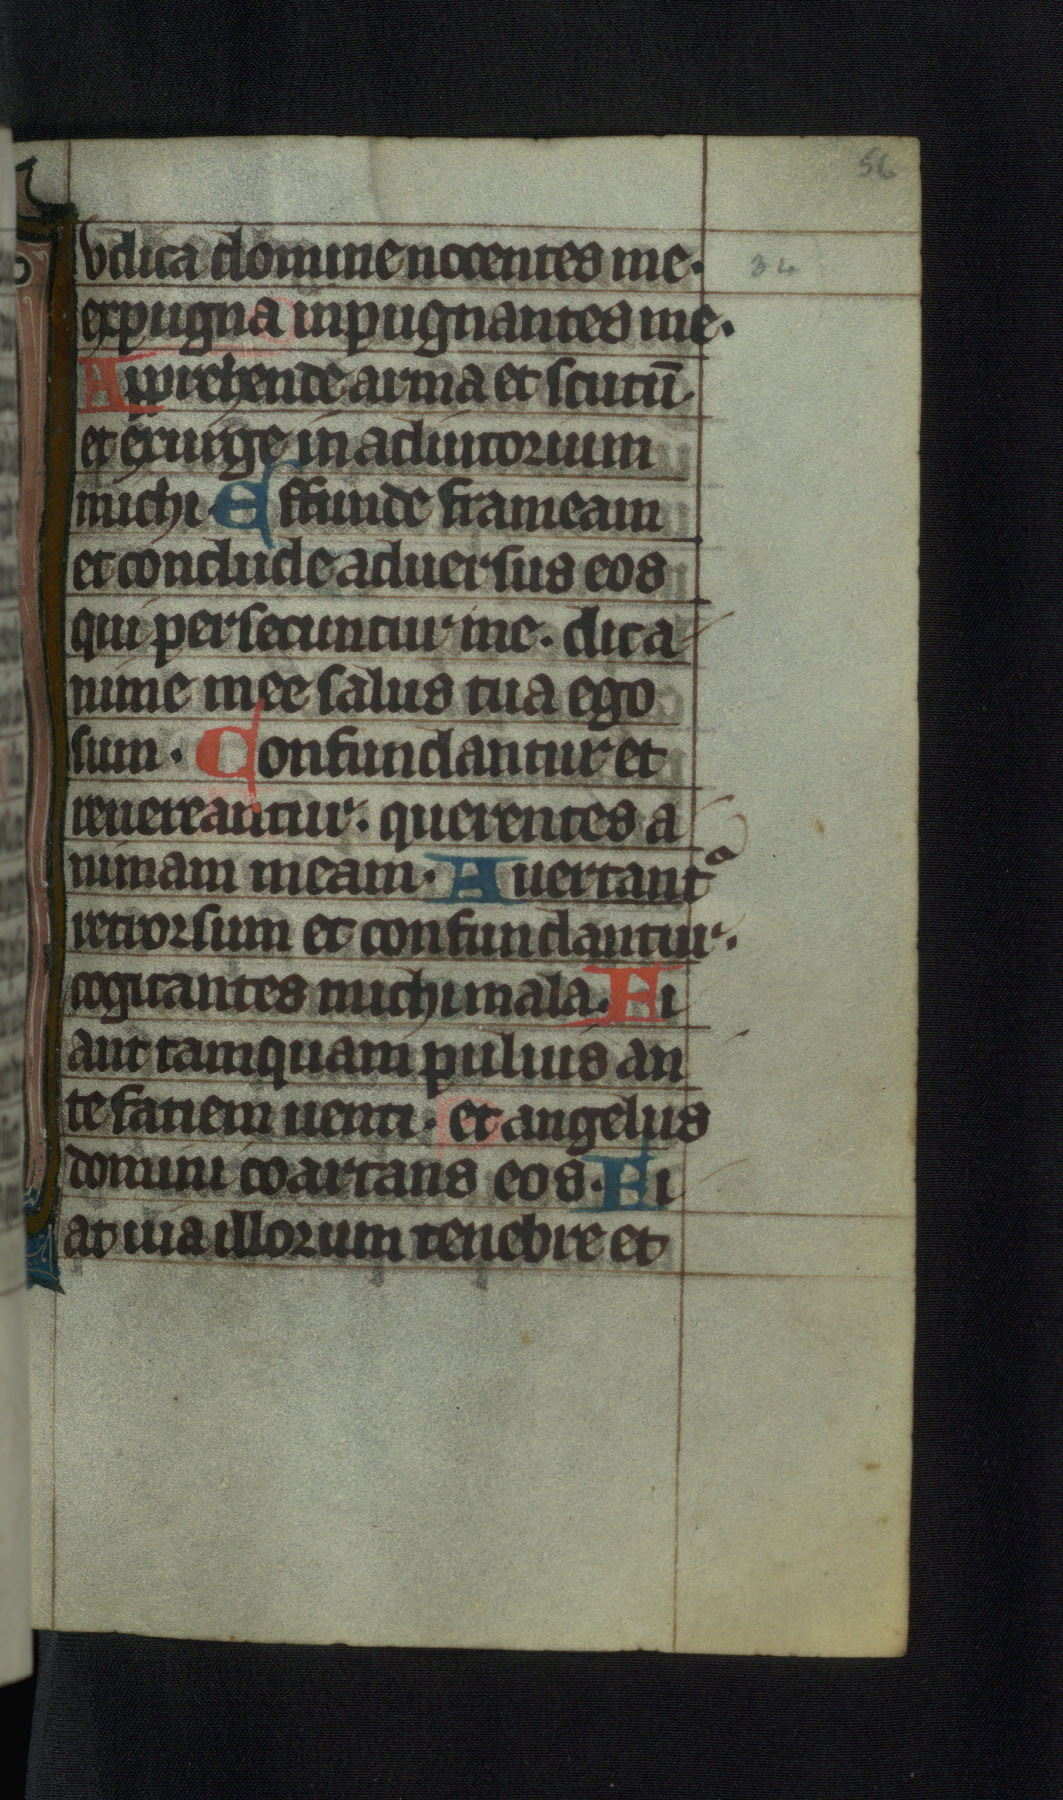 56
Iudica domine nocentes me.
34
expugna inpugnantes me.
Apprehende arma et scutū
et exurge in adiutorium
michi. Effunde frameam
et conclude aduersus eos
qui persecuntur me. dic a
nime mee salus tua ego
sum. Confundantur et
reuereantur. querentes a
nimam meam. Auertant᷑
retrorsum et confundantur.
cogitantes michi mala. Fi
ant tamquam puluis an
te faciem uenti. et angelus
domini coartans eos. Fi
at uia illorum tenebre et